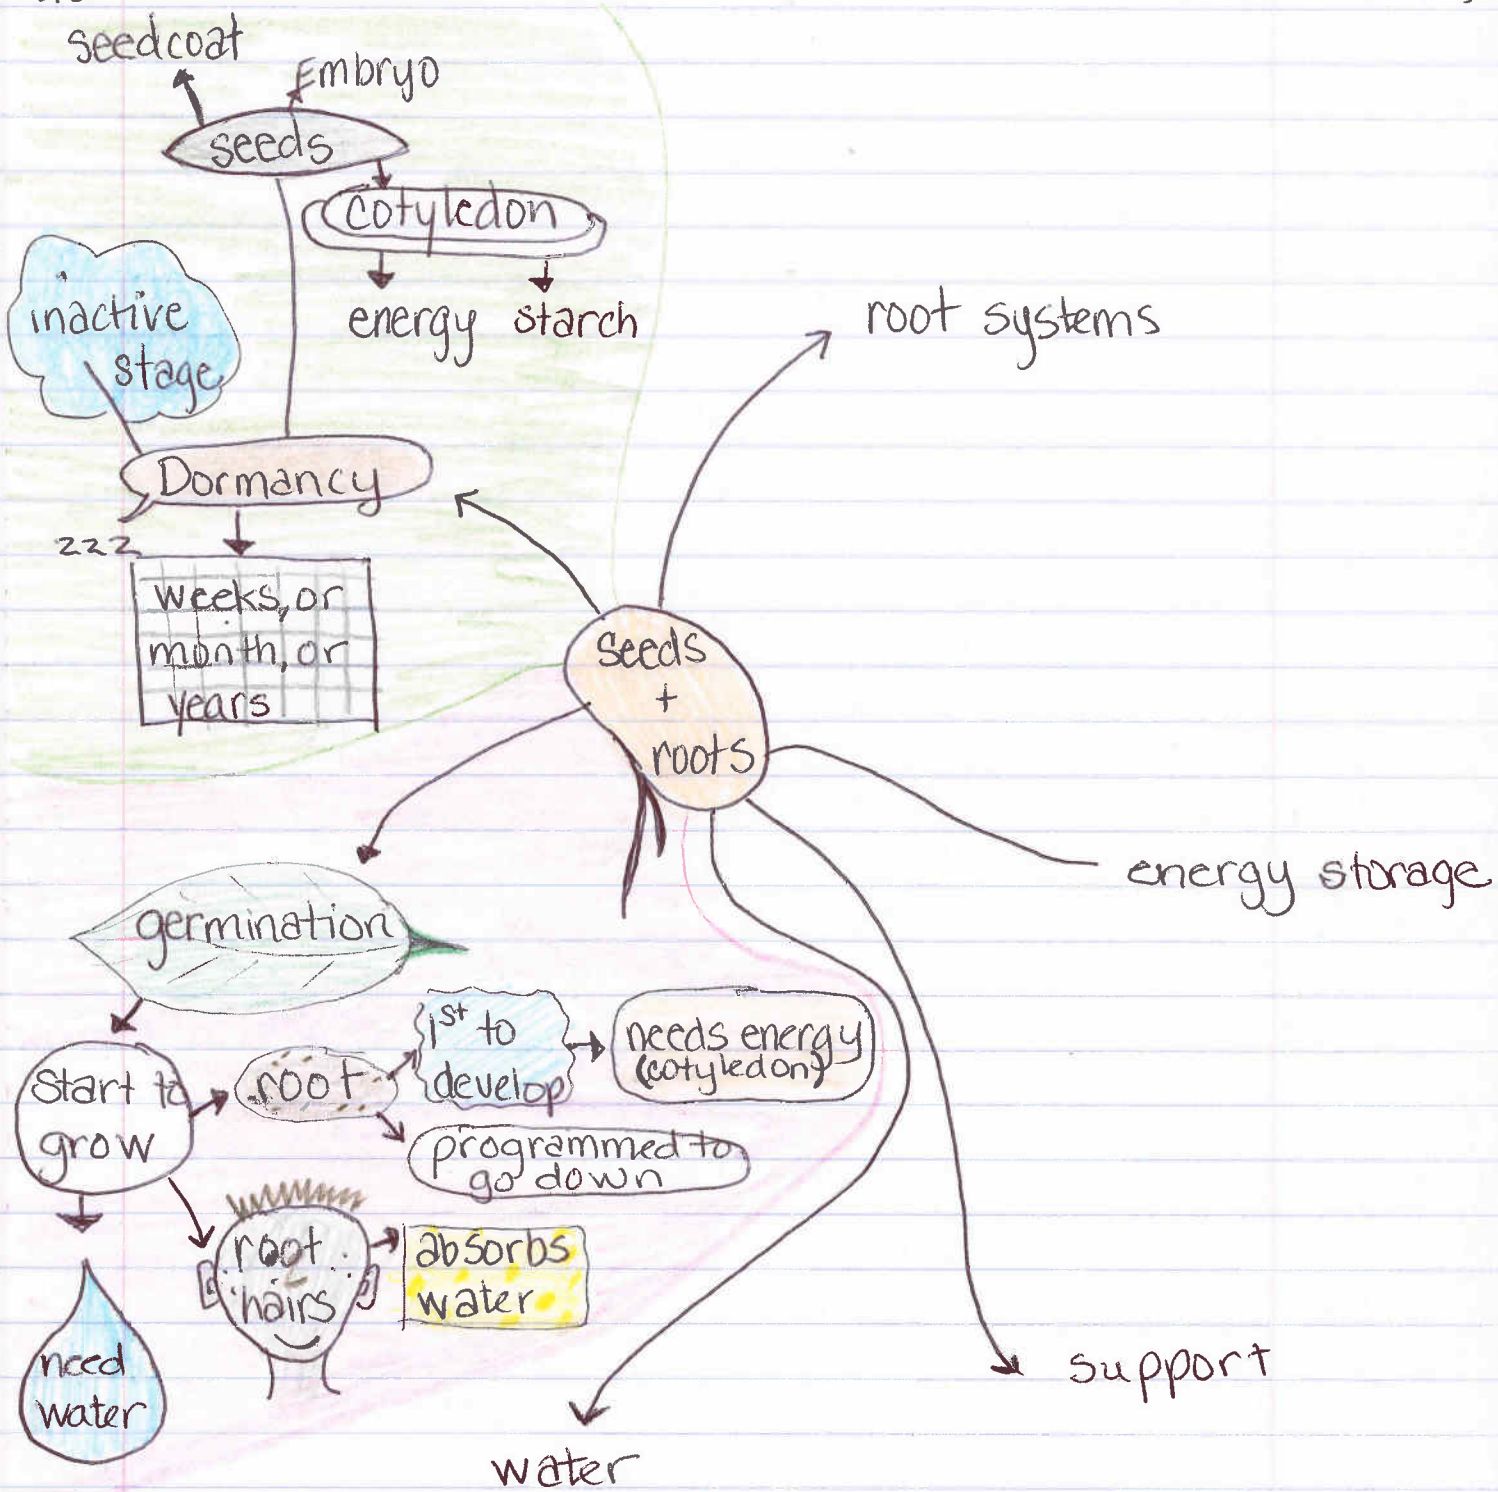 seedcoat
Embryo
seeds
cotyledon
energy
starch
inactive
stage
Dormancy
zzz
weeks, or
month, or
years
root systems
seeds
+
roots
energy storage
germination
start to
grow
root
1st to
develop
needs energy
(cotyledon)
programmed to
go down
root
hairs
absorbs
water
need
water
support
water